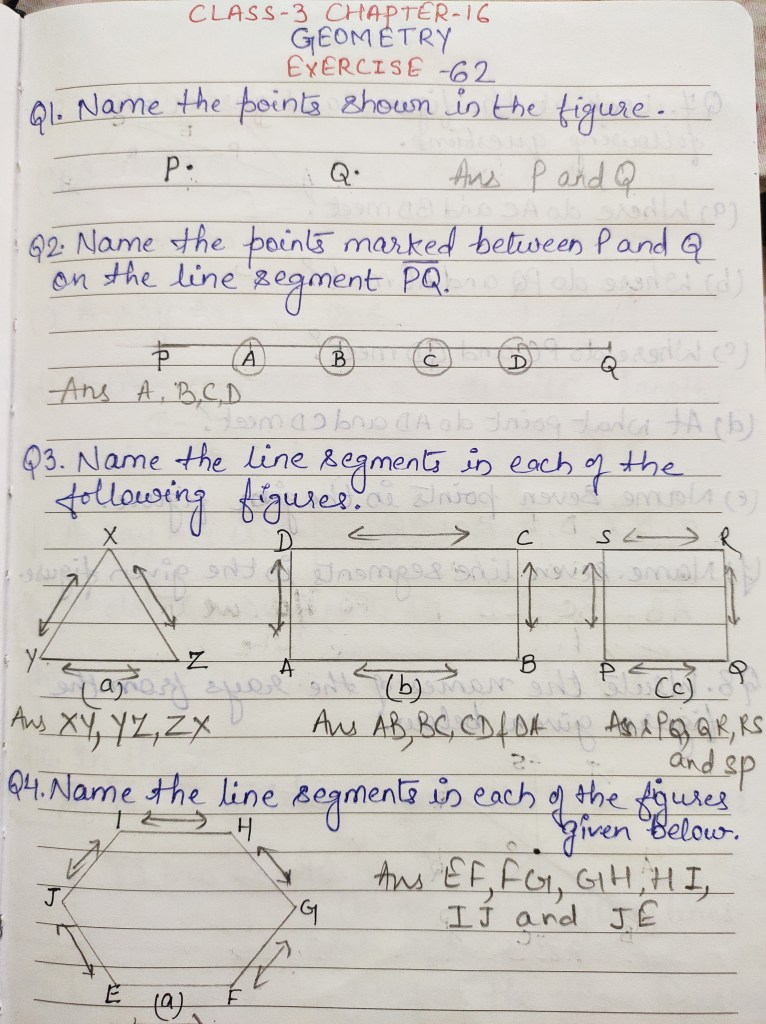 CLASS-3 CHAPTER-16
GEOMETRY
EXERCISE -62
Q1. Name the points shown in the figure.
P. Q. Ans P and Q
Q2. Name the points marked between P and Q
on the line segment PQ.
P A B C D Q
Ans A, B, C, D
Q3. Name the line segments in each of the
following figures.
X D C S R
Y Z A B P Q
(a) (b) (c)
Ans XY, YZ, ZX Ans AB, BC, CD & DA Ans PQ, QR, RS
and SP
Q4. Name the line segments in each of the figures
given below.
I H
Ans EF, FG, GH, HI,
J G
IJ and JE
E (a) F